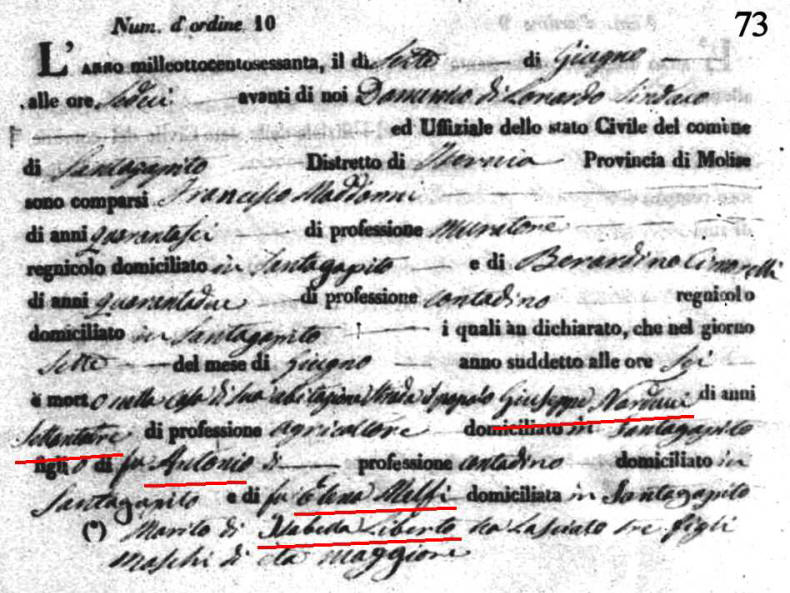 Num. d'ordine 10
73
L'ANNO milleottocentosessanta, il dì Sette di Giugno
alle ore Sedici avanti di noi Domenico di Lonardo Sindaco
ed Uffiziale dello stato Civile del comune
di Santagapito Distretto di Isernia Provincia di Molise
sono comparsi Francesco Maddonni
di anni quarantasei di professione muratore
regnicolo domiciliato in Santagapito e di Berardino Cimorelli
di anni quarantadue di professione contadino regnicolo
domiciliato in Santagapito i quali àn dichiarato, che nel giorno
Sette del mese di Giugno anno suddetto alle ore Sei
è morto nella casa di sua abitazione strada Giuseppe Narducci di anni
Settantatre di professione agricoltore domiciliato in Santagapito
figlio di fu Antonio di professione contadino domiciliato in
Santagapito e di fu Elena Melfi domiciliata in Santagapito
(*) Marito di Liberto ha lasciato tre figli
maschi di età maggiore